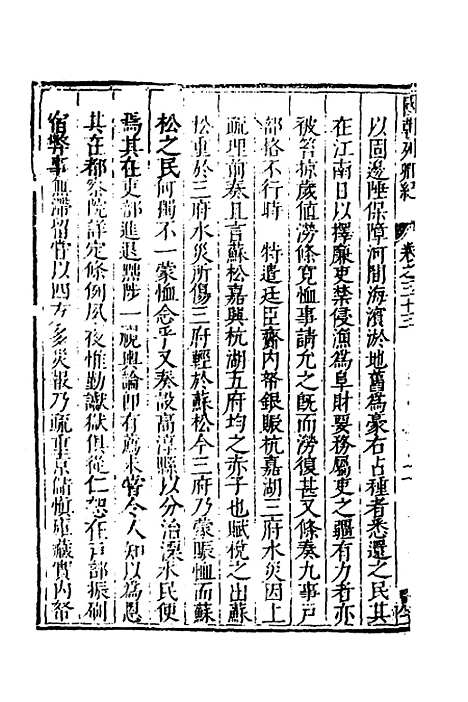 國朝列卿紀 卷之三十三
以固邊陲保障河間海濱淤地舊為豪右占種者悉還之民其
在江南日以擇廉吏禁侵漁為阜財要務屬吏之彊有力者亦
被笞掠歲值澇條寬恤事請允之既而澇復甚又條奏九事戸
部格不行時 特遣廷臣齎内帑銀賑杭嘉湖三府水災因上
疏理前奏且言蘇松嘉興杭湖五府均之赤子也賦稅之出蘇
松重於三府水災所傷三府輕於蘇松今三府乃蒙賑恤而蘇
松之民何獨不一蒙恤念乎又奏設高淳縣以分治溧水民便
焉其在吏部進退黜陟一視輿論即有薦未嘗令人知以為恩
其在都察院詳定條例夙夜惟勤讞獄俱從仁恕在戸部振刷
宿弊事無滯留嘗以四方多災報乃疏重京儲慎庫藏實内帑